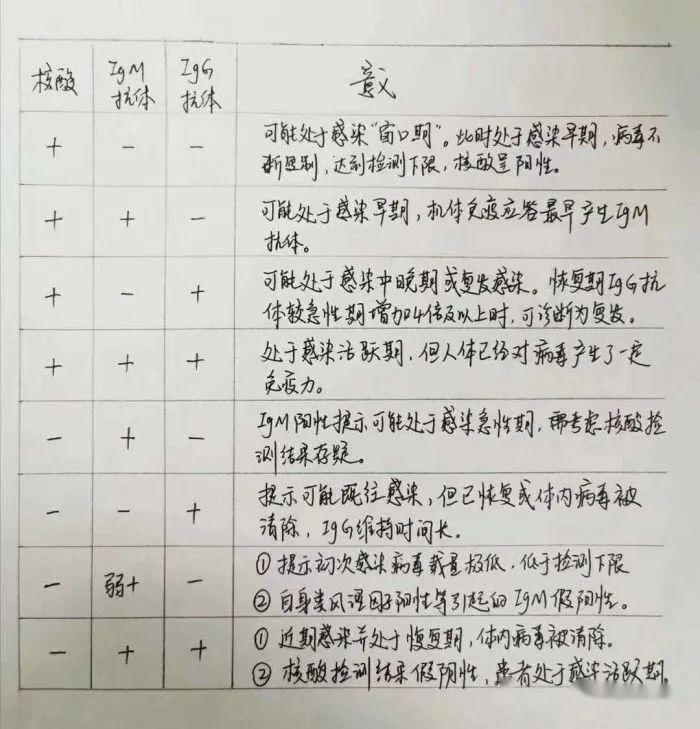 核酸 IgM抗体 IgG抗体 意义
+ - - 可能处于感染“窗口期”。此时处于感染早期，病毒不
断复制，达到检测下限，核酸呈阳性。
+ + - 可能处于感染早期，机体免疫应答最早产生IgM
抗体。
+ - + 可能处于感染中晚期或复发感染。恢复期IgG抗
体较急性期增加4倍及以上时，可诊断为复发。
+ + + 处于感染活跃期，但人体已经对病毒产生了一定
免疫力。
- + - IgM阳性提示可能处于感染急性期，需考虑核酸检
测结果存疑。
- - + 提示可能既往感染，但已恢复或体内病毒被
清除，IgG维持时间长。
- 弱+ - ①提示初次感染病毒载量极低，低于检测下限
②自身类风湿因子阳性等引起的IgM假阳性。
- + + ①近期感染并处于恢复期，体内病毒被清除。
②核酸检测结果假阴性，患者处于感染活跃期。